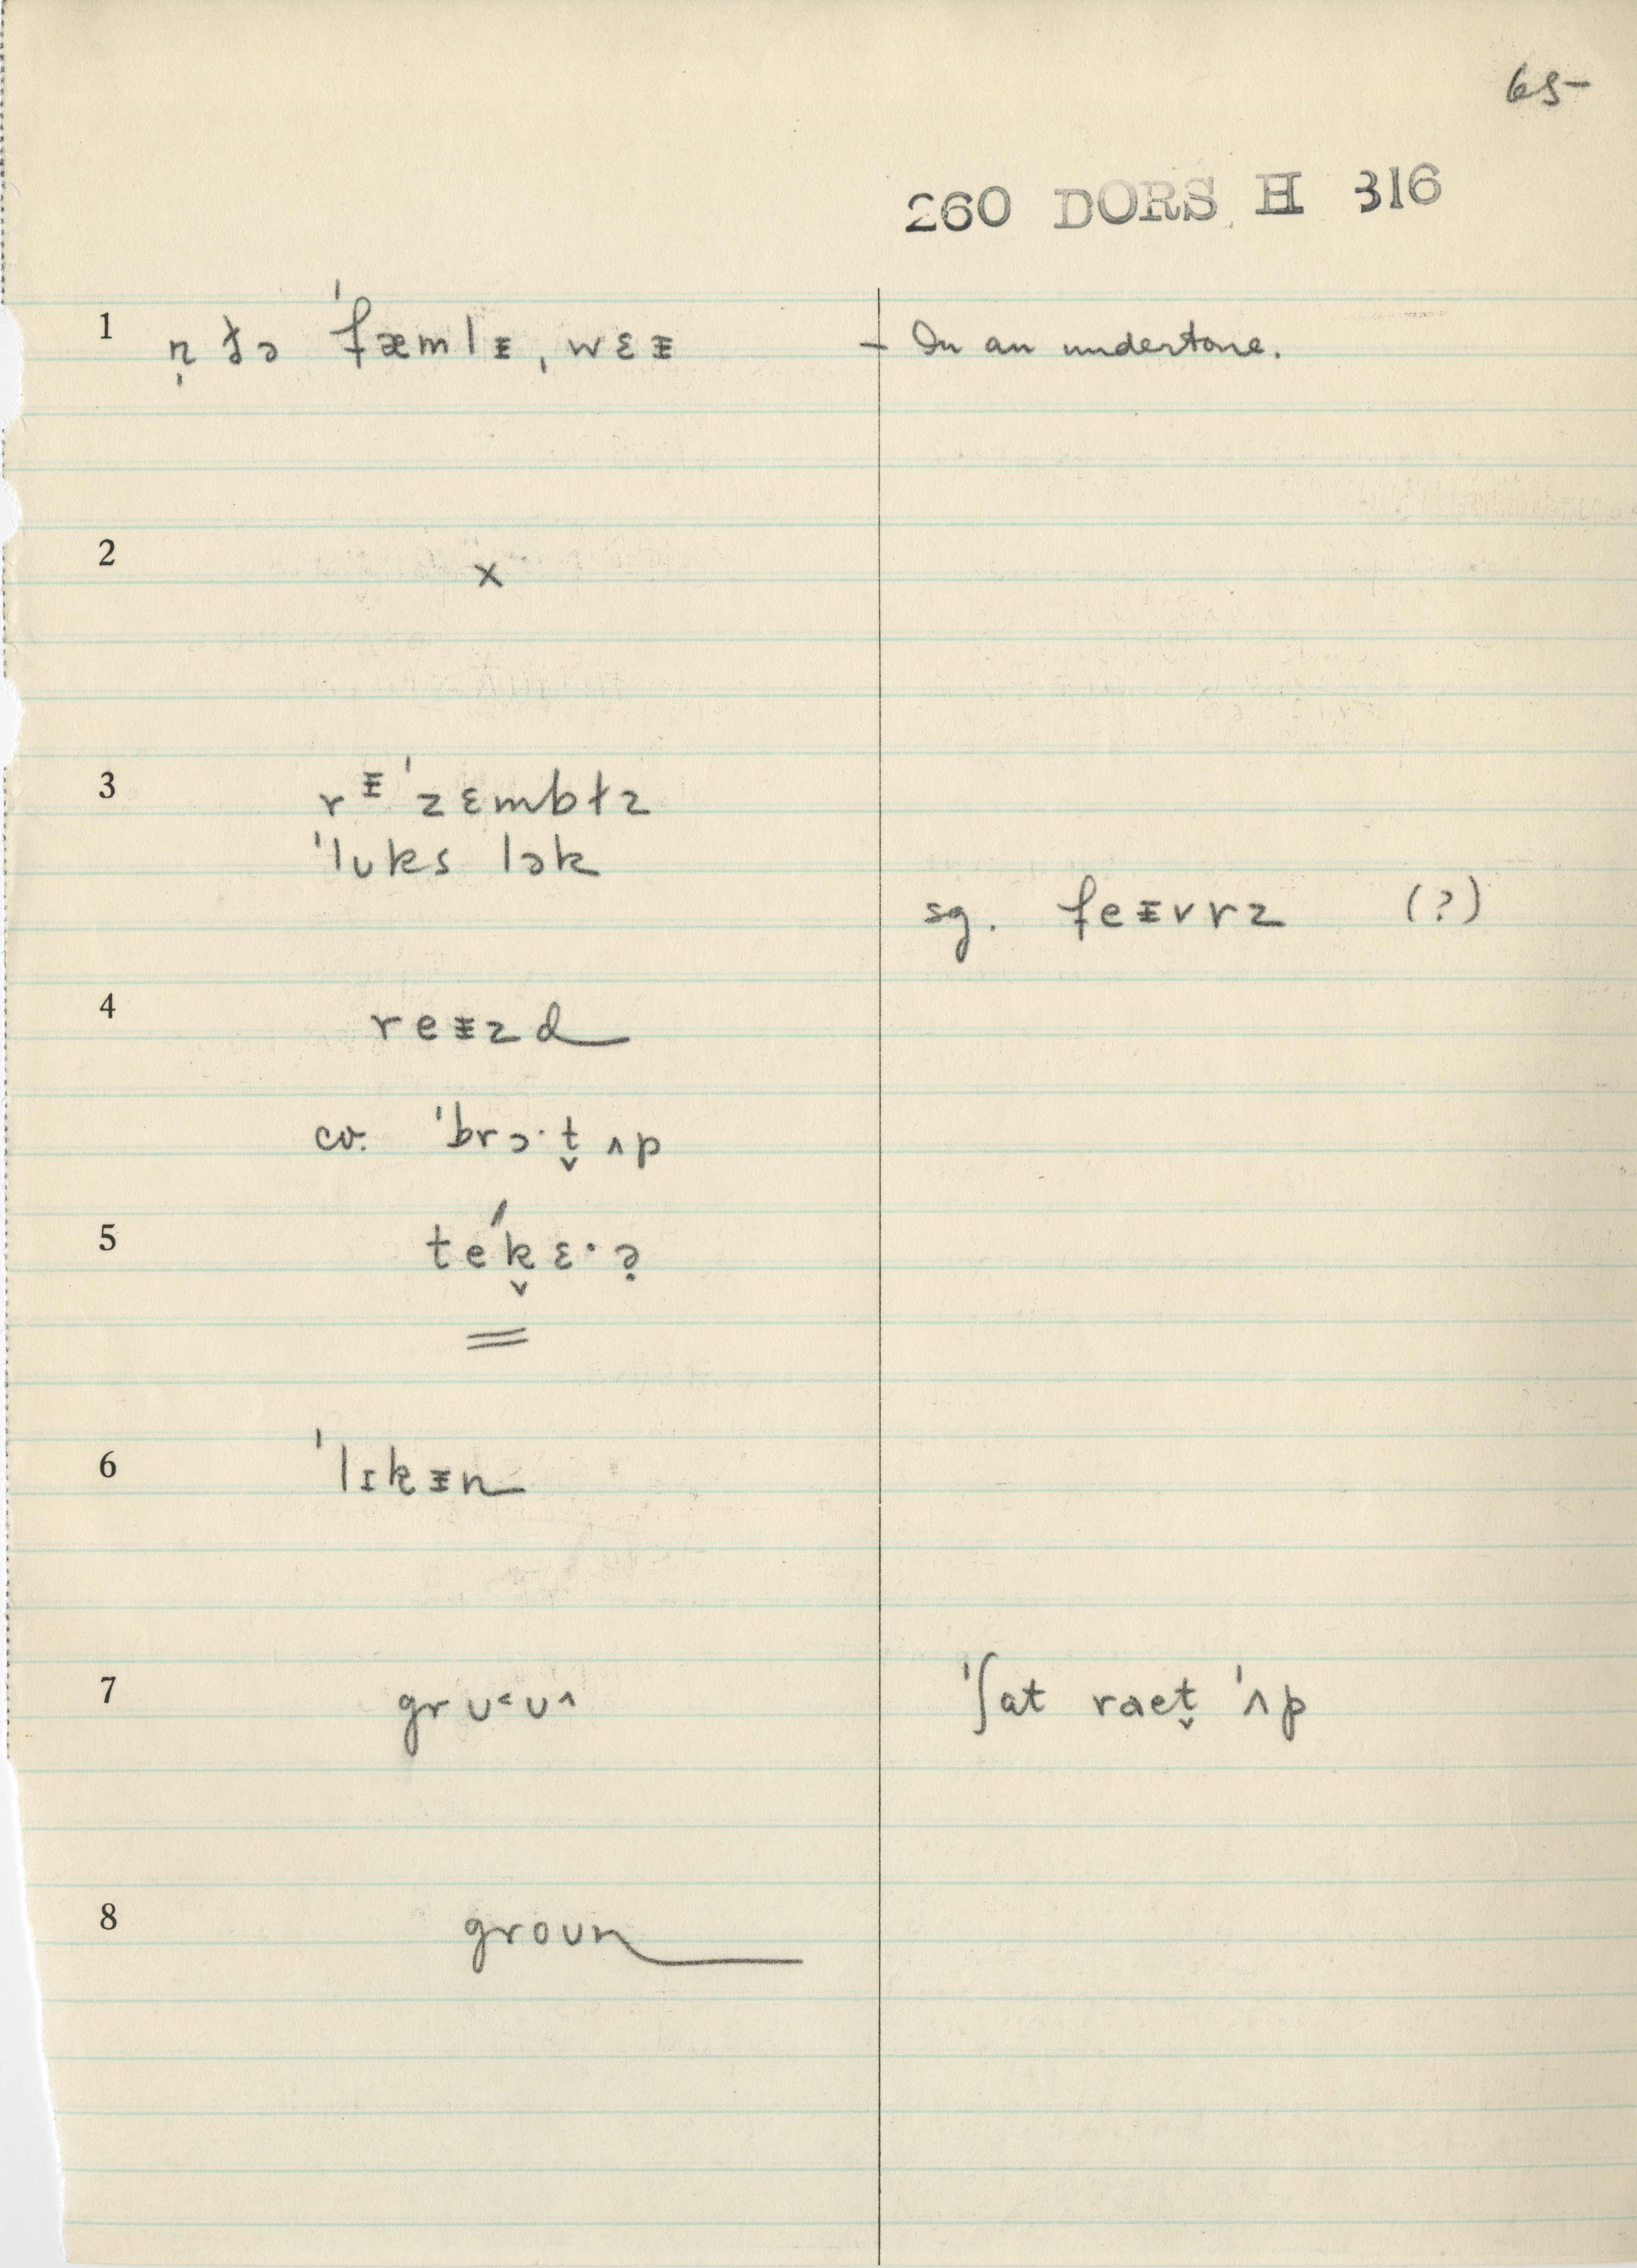 65-
260 DORS H 316
1 n̩ ðə ˈfæmlᵻ, wɛᵻ – In an undertone.
2 x
3 rᵻˈzɛmbɫz
ˈlʊks lək
sg. feᵻvrz (?)
4 reᵻzd
cv. ˈbrɔ·t̬ ʌp
5 teˊk̬ɛ·ə̣
6 ˈlɪkᵻn
7 grʊ˂ʊ^ ˈʃat raet̬ ˈʌp
8 groʊn